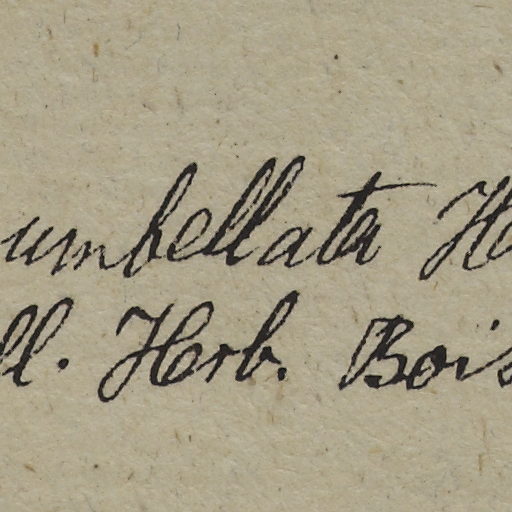 umbellata H
ll. Herb. Bois